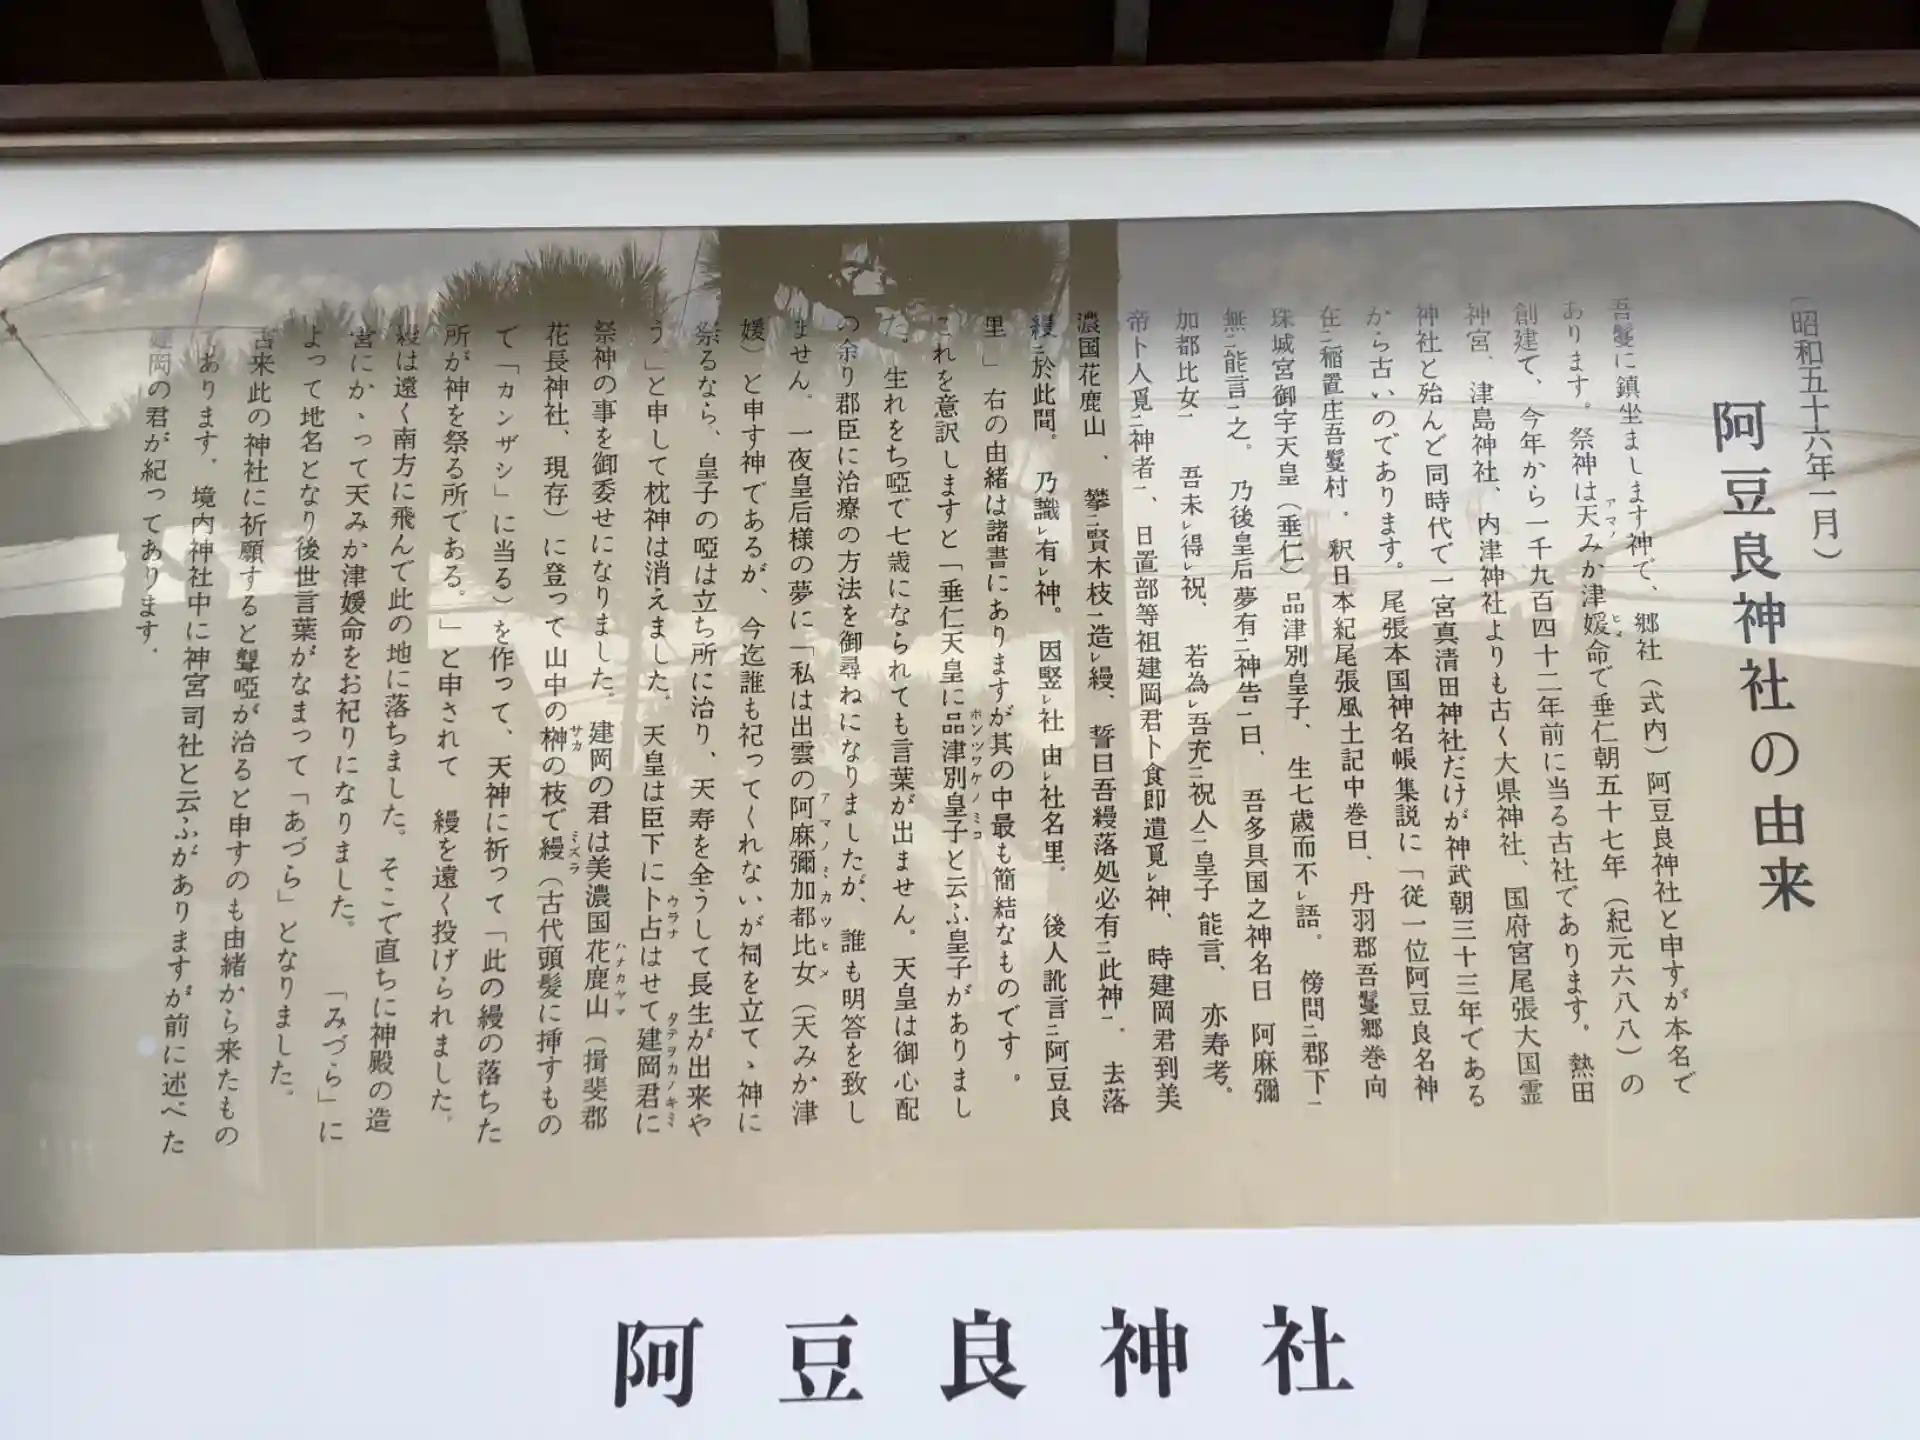 (昭和五十六年一月)
阿豆良神社の由来
吾鬘に鎮坐まします神で、郷社(式内)阿豆良神社と申すが本名で
あります。祭神は天みか津媛命で垂仁朝五十七年(紀元六八八)の
アマノ ヒメ
創建て、今年から一千九百四十二年前に当る古社であります。熱田
神宮、津島神社、内津神社よりも古く大県神社、国府宮尾張大国霊
神社と殆んど同時代で一宮真清田神社だけが神武朝三十三年である
から古いのであります。尾張本国神名帳集説に「従一位阿豆良名神
在ニ稲置庄吾鬘村.釈日本紀尾張風土記中巻曰、丹羽郡吾鬘郷巻向
珠城宮御宇天皇(垂仁)品津別皇子、生七歳而不レ語。傍問ニ郡下一
無ニ能言一之。乃後皇后夢有ニ神告一曰、吾多具国之神名曰 阿麻彌
加都比女一 吾未レ得レ祝、若為レ吾充ニ祝人一皇子能言、亦寿考。
帝卜人覓ニ神者一、日置部等祖建岡君卜食即遣覓レ神、時建岡君到美
濃国花鹿山、攀ニ賢木枝一造レ縵、誓曰吾縵落処必有ニ此神一.去落
縵ニ於此間。乃識レ有レ神。因竪レ社由レ社名里.後人訛言ニ阿豆良
里」右の由緒は諸書にありますが其の中最も簡結なものです。
これを意訳しますと「垂仁天皇に品津別皇子と云ふ皇子がありまし
ホンツワケノミコ
た。生れをち啞で七歳になられても言葉が出ません。天皇は御心配
の余り郡臣に治療の方法を御尋ねになりましたが、誰も明答を致し
ません。一夜皇后様の夢に「私は出雲の阿麻彌加都比女(天みか津
アマノミカツヒメ
媛)と申す神であるが、今迄誰も祀ってくれないが祠を立てゝ神に
祭るなら、皇子の啞は立ち所に治り、天寿を全うして長生が出来や
う」と申して枕神は消えました。天皇は臣下に卜占はせて建岡君に
ウラナ タテヲカノキミ
祭神の事を御委せになりました。建岡の君は美濃国花鹿山(揖斐郡
ハナカヤマ
花長神社、現存)に登って山中の榊の枝で縵(古代頭髪に挿すもの
サカ ミズラ
で「カンザシ」に当る)を作って、天神に祈って「此の縵の落ちた
所が神を祭る所である。」と申されて 縵を遠く投げられました。
縵は遠く南方に飛んで此の地に落ちました。そこで直ちに神殿の造
営にかゝって天みか津媛命をお祀りになりました。「みづら」に
よって地名となり後世言葉がなまって「あづら」となりました。
古来此の神社に祈願すると聾啞が治ると申すのも由緒から来たもの
であります.境内神社中に神宮司社と云ふがありますが前に述べた
建岡の君が紀ってあります.
阿豆良神社